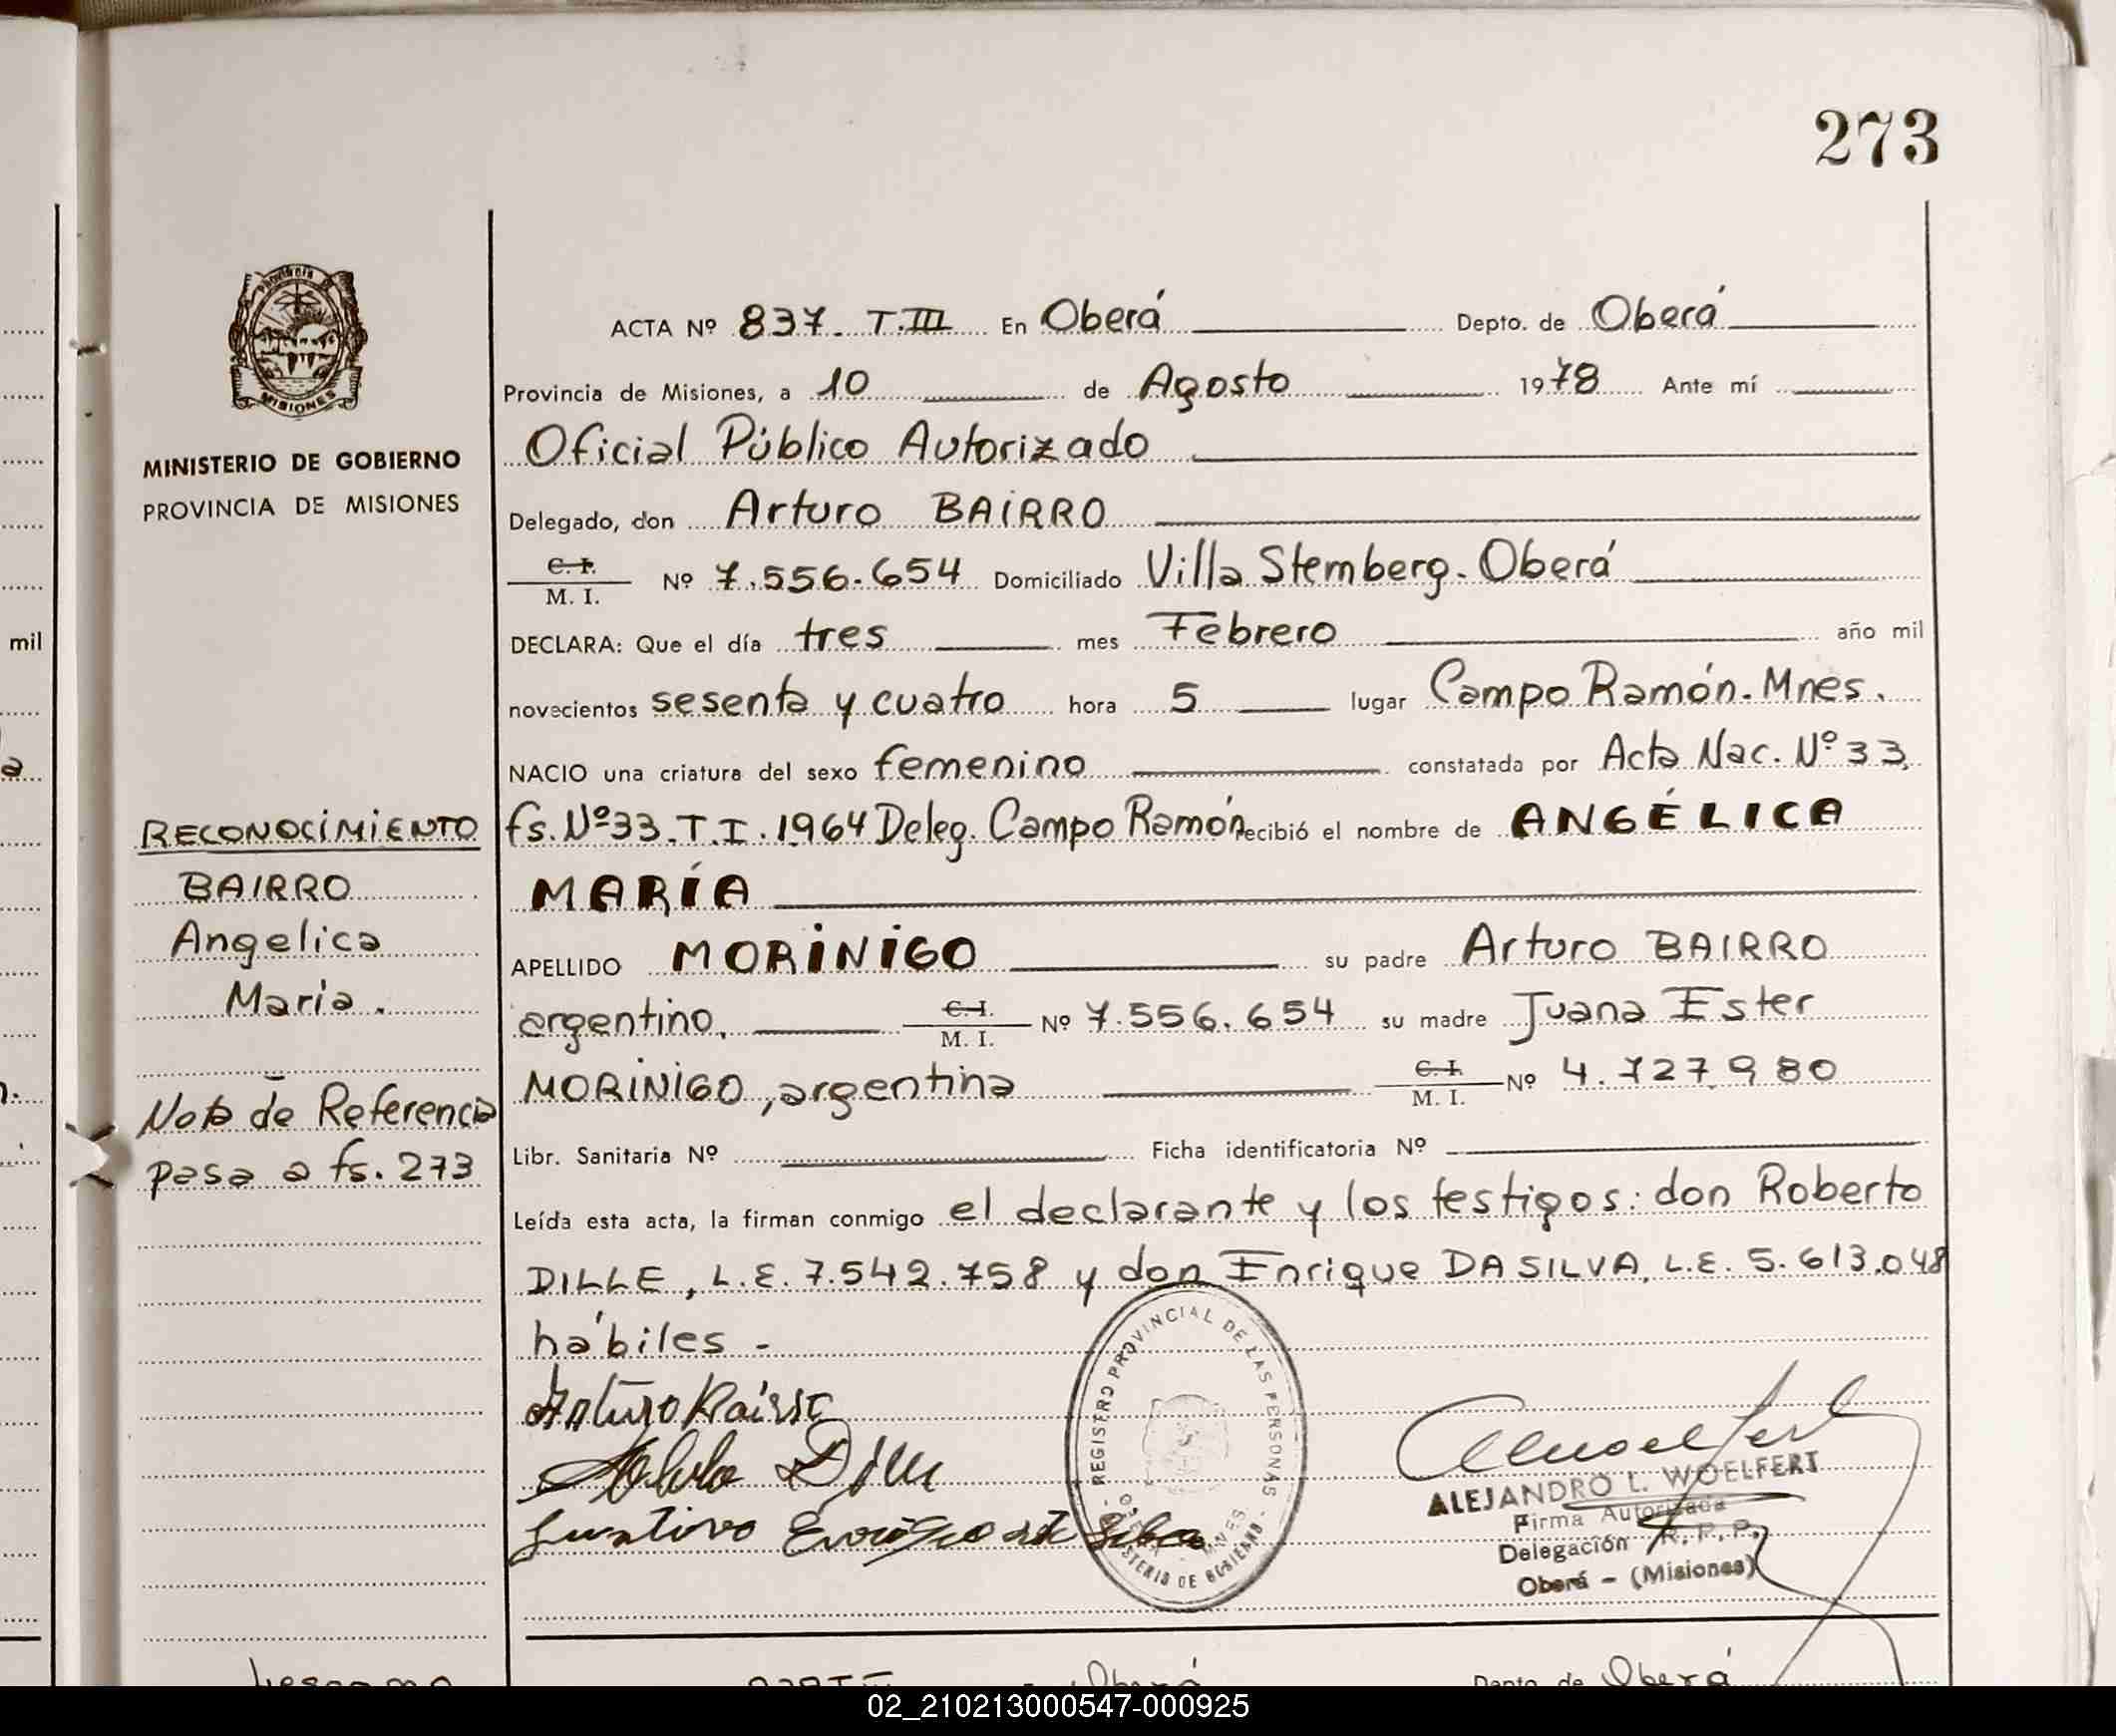 273
Provincia de
MISIONES
MINISTERIO DE GOBIERNO
PROVINCIA DE MISIONES
RECONOCIMIENTO
BAIRRO
Angelica
Maria.
Nota de Referencia
pasa a fs. 273
mil
ACTA Nº 837 T.III En Oberá Depto. de Oberá
Provincia de Misiones, a 10 de Agosto 1978 Ante mí
Oficial Público Autorizado
Delegado, don Arturo BAIRRO
C. I. M. I. Nº 7.556.654 Domiciliado Villa Stemberg. Oberá
DECLARA: Que el día tres mes Febrero año mil
novecientos sesenta y cuatro hora 5 lugar Campo Ramón. Mnes.
NACIO una criatura del sexo femenino constatada por Acta Nac. Nº 33,
fs. Nº 33. T. I. 1964 Deleg. Campo Ramón recibió el nombre de ANGÉLICA
MARÍA
APELLIDO MORINIGO su padre Arturo BAIRRO
argentino, C. I. M. I. Nº 7.556.654 su madre Juana Ester
MORINIGO, argentina C. I. M. I. Nº 4.727.980
Libr. Sanitaria Nº Ficha identificatoria Nº
Leída esta acta, la firman conmigo el declarante y los testigos: don Roberto
DILLE, L.E. 7.542.758 y don Enrique DA SILVA, L.E. 5.613.048
hábiles -
Arturo Bairro
Dille
Gustavo Enrique da Silva
REGISTRO PROVINCIAL DE LAS PERSONAS - MINISTERIO DE GOBIERNO
OBERÁ - MNES.
ALEJANDRO L. WOELFERT
Firma Autorizada
Delegación R. P. P.
Oberá - (Misiones)
Oberá Depto de Oberá
02_210213000547-000925